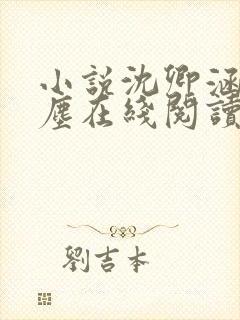 小説沈卿涵
塵在綫閱讀
劉吉本